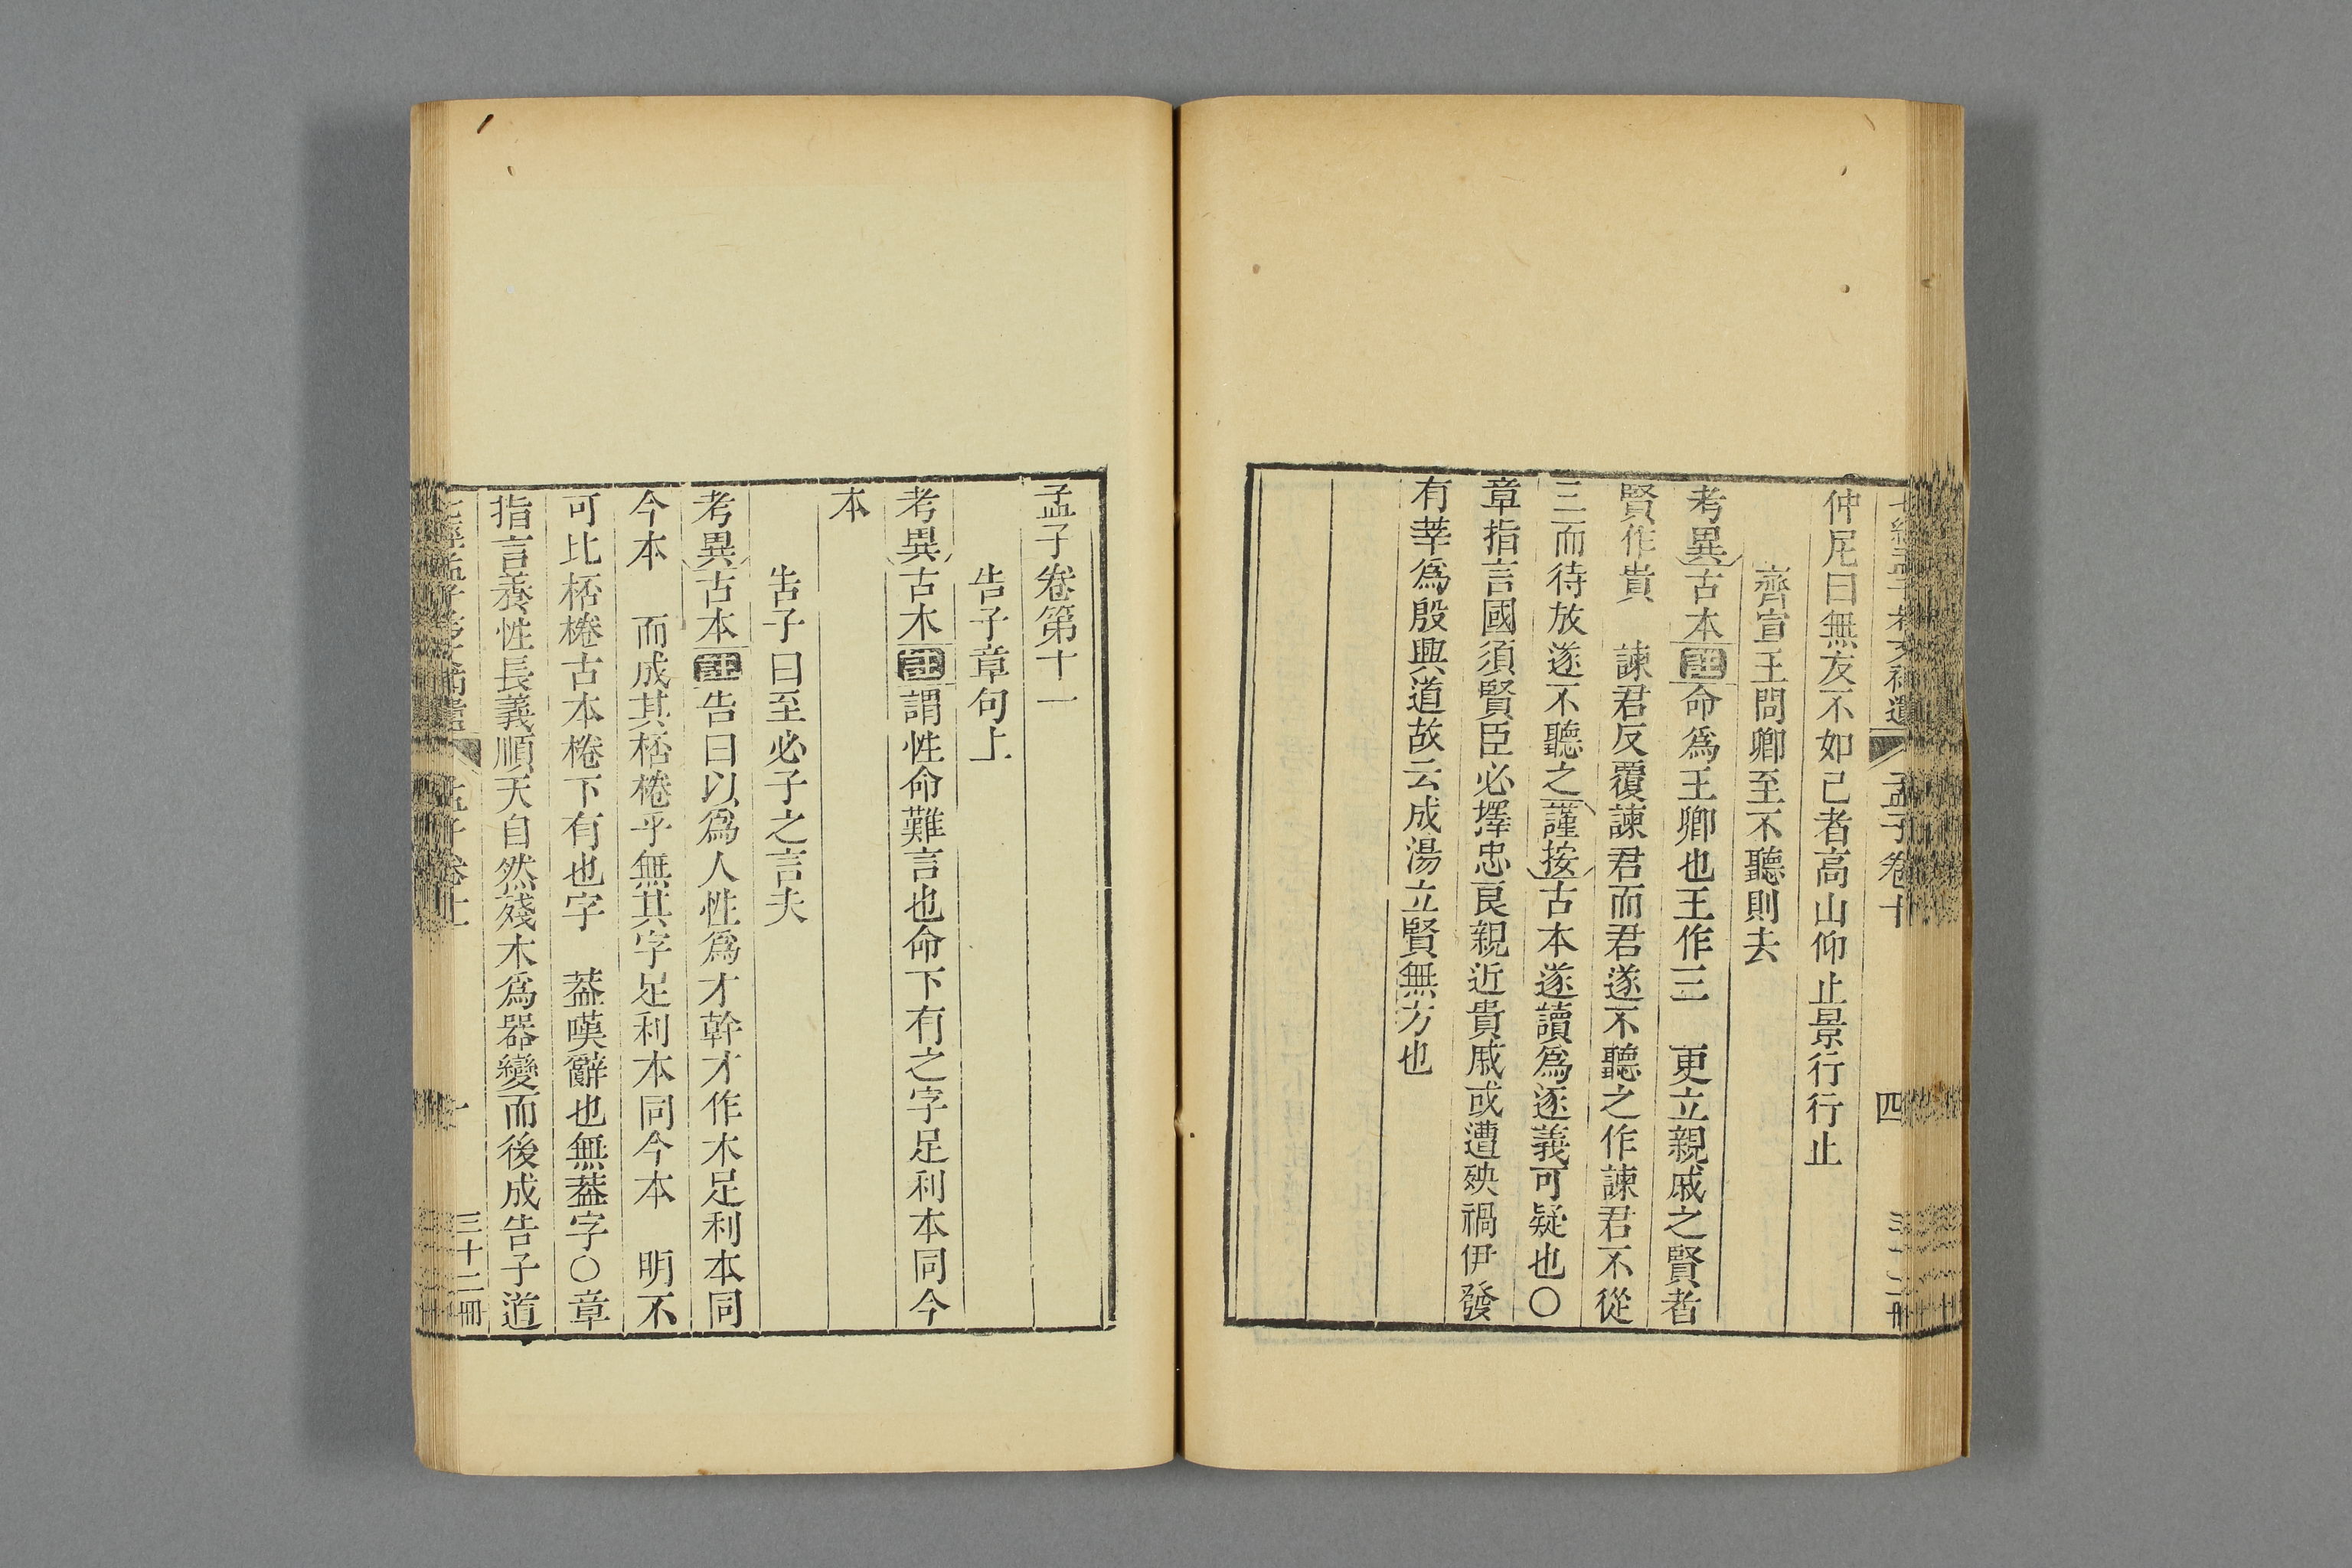 孟子卷十
四
仲尼曰無友不如己者高山仰止景行行止
齊宣王問卿至不聽則去
考異古本註命爲王卿也王作三　更立親戚之賢者
賢作貴　諫君反覆諫君而君遂不聽之作諫君不從
三而待放遂不聽之謹按古本遂讀爲逐義可疑也〇
章指言國須賢臣必擇忠良親近貴戚或遭殃禍伊發
有莘爲殷興道故云成湯立賢無方也
孟子卷第十一
告子章句上
考異古木註謂性命難言也命下有之字足利本同今
本
告子曰至必子之言夫
考異古本註告曰以爲人性爲才幹才作木足利本同
今本　而成其桮棬乎無其字足利本同今本　明不
可比桮棬古本棬下有也字　葢嘆辭也無葢字〇章
指言養性長義順天自然殘木爲器變而後成告子道
三十二冊